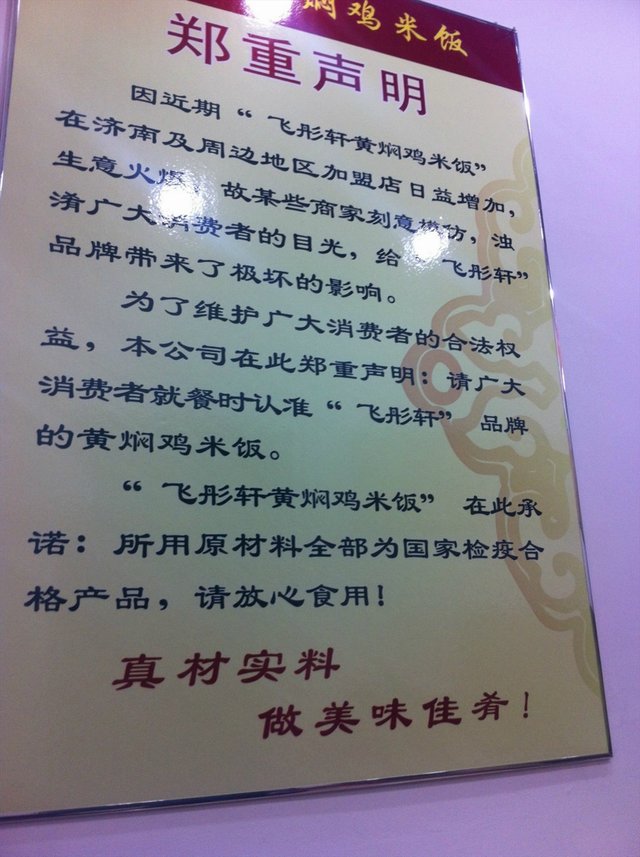 焖鸡米饭
郑重声明
因近期“飞彤轩黄焖鸡米饭”
在济南及周边地区加盟店日益增加，
生意火爆，故某些商家刻意模仿，浊
淆广大消费者的目光，给“飞彤轩”
品牌带来了极坏的影响。
为了维护广大消费者的合法权
益，本公司在此郑重声明：请广大
消费者就餐时认准“飞彤轩”品牌
的黄焖鸡米饭。
“飞彤轩黄焖鸡米饭”在此承
诺：所用原材料全部为国家检疫合
格产品，请放心食用！
真材实料
做美味佳肴！